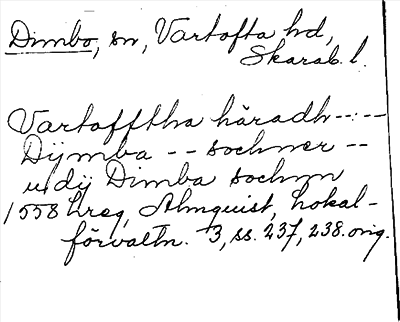 Dimbo, sn, Vartofta hd,
Skarab. l.
Vartofftha häradh -- : --
Dÿmba -- sochner --
udÿ Dimba sochnn
1558 hreg, Almquist, Lokal-
förvaltn. 3, ss. 237, 238. orig.